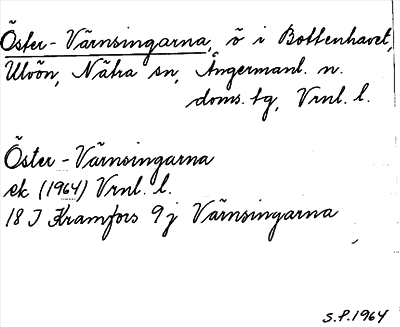 Öster-Värnsingarna, ö i Bottenhavet,
Ulvön, Nätra sn, Ångermanl. n.
doms. tg, Vrnl. l.
Öster-Värnsingarna
ek (1964) Vrnl. l.
18 I Kramfors 9j Värnsingarna
S.P.1964